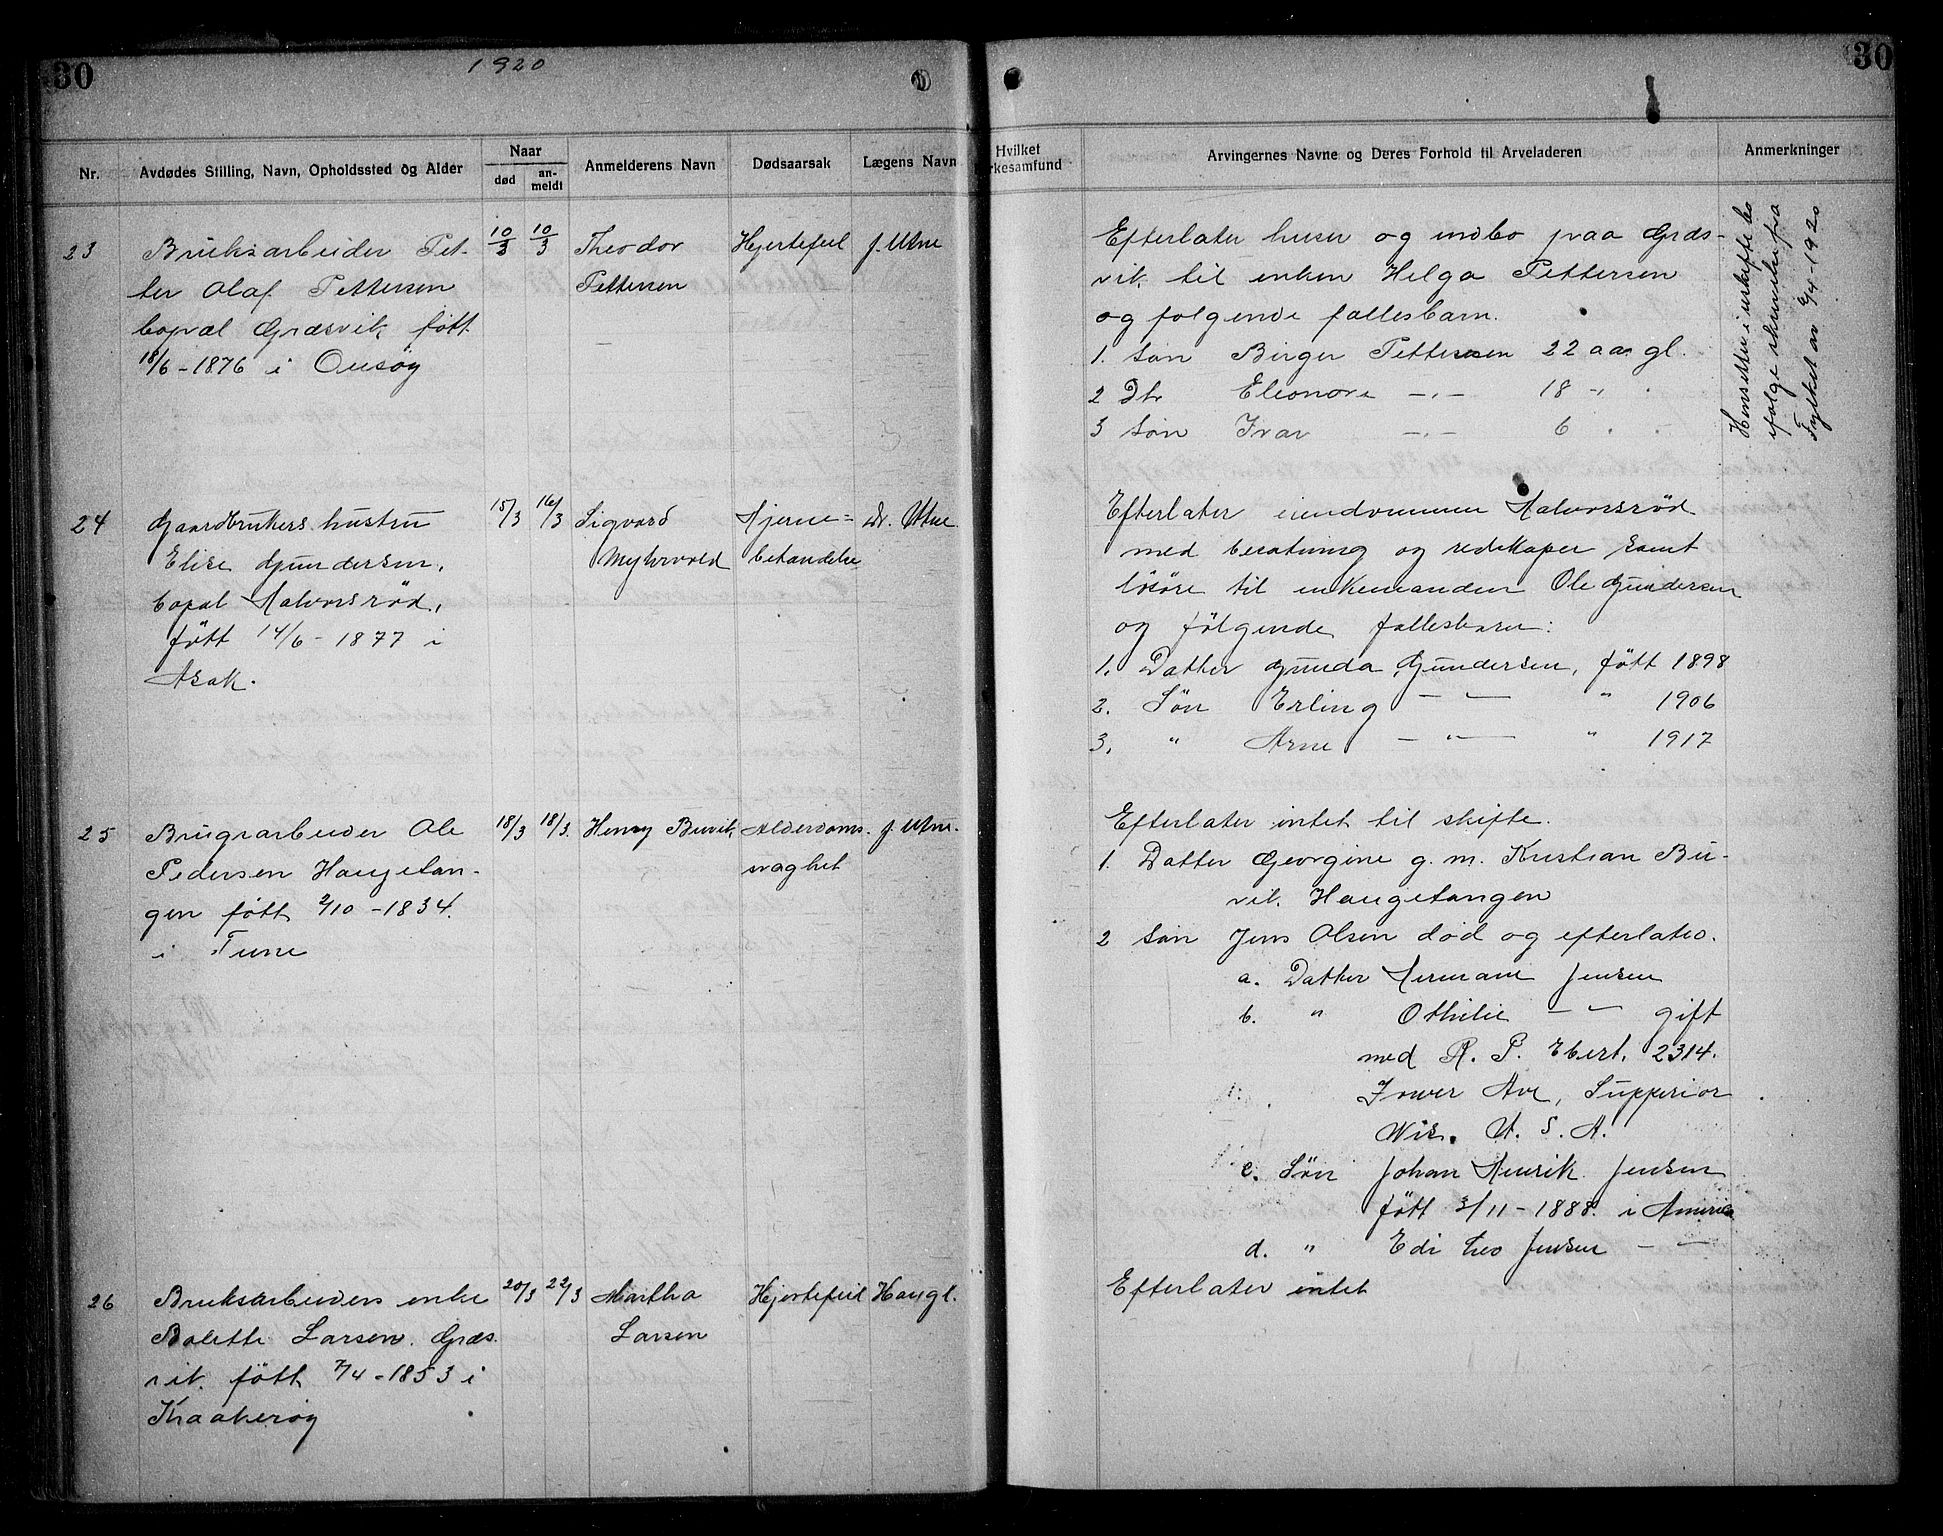 30
1920
30
Nr.
Avdødes Stilling, Navn, Opholdssted og Alder
Naar
død
an-
meldt
Anmelderens Navn
Dødsaarsak
Lægens Navn
Hvilket
rkesamfund
Arvingernes Navne og Deres Forhold til Arveladeren
Anmerkninger
23
Bruksarbeider Pet-
ter Olaf Pettersen
bopæl Græsvik født
18/6 - 1876 i Onsøy
10/3
10/3
Theodor
Pettersen
Hjertefeil
J. Utne
Efterlater huser og indbo paa Græs-
vik til enken Helga Pettersen
og følgende fællesbarn.
1. Søn Birger Pettersen 22 aar gl.
2 Dtr Eleonore -"- 18 "
3 Søn Ivar -"- 6 "
Hensitter i uskiftet bo
ifølge skrivelse fra
Fylket av 6/4-1920
24
Gaardbrukers hustru
Elise Gundersen,
bopæl Halvorsrød,
født 14/6 - 1877 i
Asak.
15/3
16/3
Sigvard
Myhrvold
Hjerne=
betændelse
Dr. Utne
Efterlater eiendommen Halvorsrød
med besætning og redskaper samt
løsøre til enkemanden Ole Gundersen
og følgende fællesbarn:
1. Datter Gunda Gundersen, født 1898
2. Søn Erling - " - " 1906
3. " Arne - " - " 1917
25
Brugsarbeider Ole
Pedersen Haugetan-
gen født 2/10 - 1834.
i Tune
18/3
18/3.
Henry Buvik
Alderdoms-
svaghet
J. Utne.
Efterlater intet til skifte.
1. Datter Georgine g. m. Kristian Bu-
vik. Haugetangen
2 Søn Jens Olsen død og efterlater.
a. Datter Hermane Jensen
b. " Othilie - " - gift
med R. P. Ebert, 2314.
Tower Ave, Supperior
Wis. U. S. A.
c. Søn Johan Henrik Jensen
født 3/11 - 1888. i America
d. " Edi Leo Jensen - " -
26
Bruksarbeiders enke
Bolette Larsen. Græs-
vik. født 7/4 - 1853 i
Kraakerøy
20/3
22/3
Martha
Larsen
Hjertefeil
Haugl.
Efterlater intet